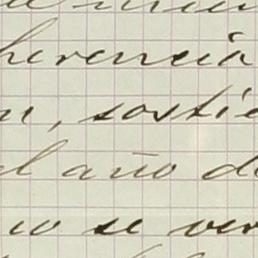 herencia
n, sostie
l año de
no se ver